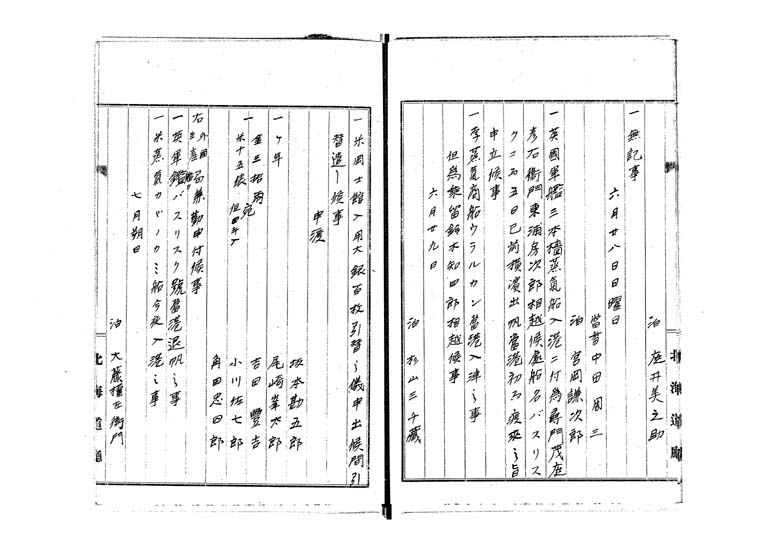 泊 庭井美之助
一無記事
六月廿八日日曜日
當番中田周三
泊 宮岡謙次郎
一英國軍艦三本檣蒸氣船入港ニ付為尋問茂庭
彦右衛門東浦房次郎相越候處船名バスリス
クニ而五日已前横濱出帆當港初而渡來之旨
申立候事
一孛蒸氣商船ウラルカン當港入津之事
但為乗留鈴木知四郎相越候事
六月廿九日
泊 杉山三千蔵
北海道廳
一米岡士館入用大銀百枚引替之儀申出候間引
替造し候事
申渡
坂本勘五郎
一ヶ年 尾崎峯太郎
金三拾両宛 吉田豐吉
一米十五俵 但四斗入 小川佐七郎
角田忠四郎
右外國局兼勤申付候事
生産
一英軍艦バスリスク號當港退帆之事
一米蒸氣カガノカミ船今夜入港之事
七月朔日
泊 大藤權左衛門
北海道廳